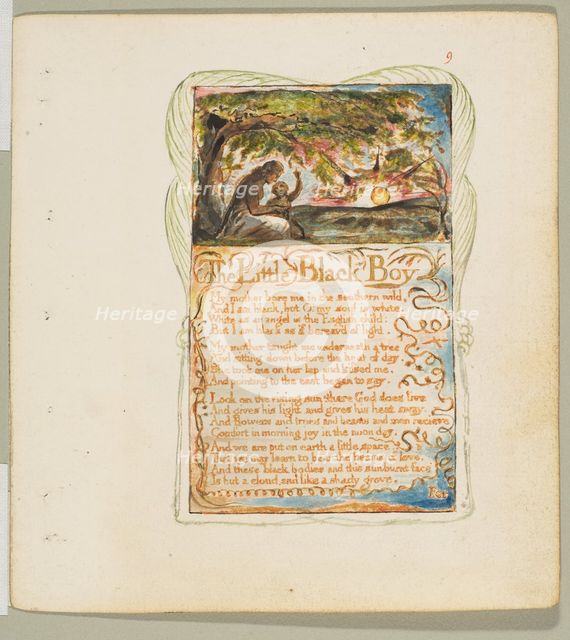 9
The Little Black Boy
My mother bore me in the southern wild,
And I am black, but O! my soul is white
White as an angel is the English child:
But I am black as if bereav'd of light.
My mother taught me underneath a tree
And sitting down before the heat of day.
She took me on her lap and kissed me,
And pointing to the east began to say.
Look on the rising sun: there God does live
And gives his light, and gives his heat away.
And flowers and trees and beasts and men recieve
Comfort in morning joy in the noon day.
And we are put on earth a little space
That we may learn to bear the beams of love,
And these black bodies and this sunburnt face
Is but a cloud, and like a shady grove.
For
Heritage Heritage
Heritage Heritage Heritage
Heritage Heritage